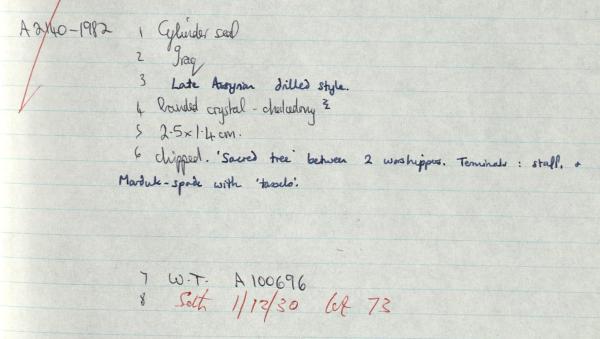 A2140-1982 1 Cylinder seal
2 Iraq
3 Late Assyrian drilled style.
4 Banded crystal - chalcedony
5 2.5 x 1.4 cm.
6 Chipped. 'Sacred tree' between 2 worshippers. Terminals: staff. +
Marduk-spade with 'tassels'.
7 W.T. A100696
8 Soth 1/12/30 lot 73